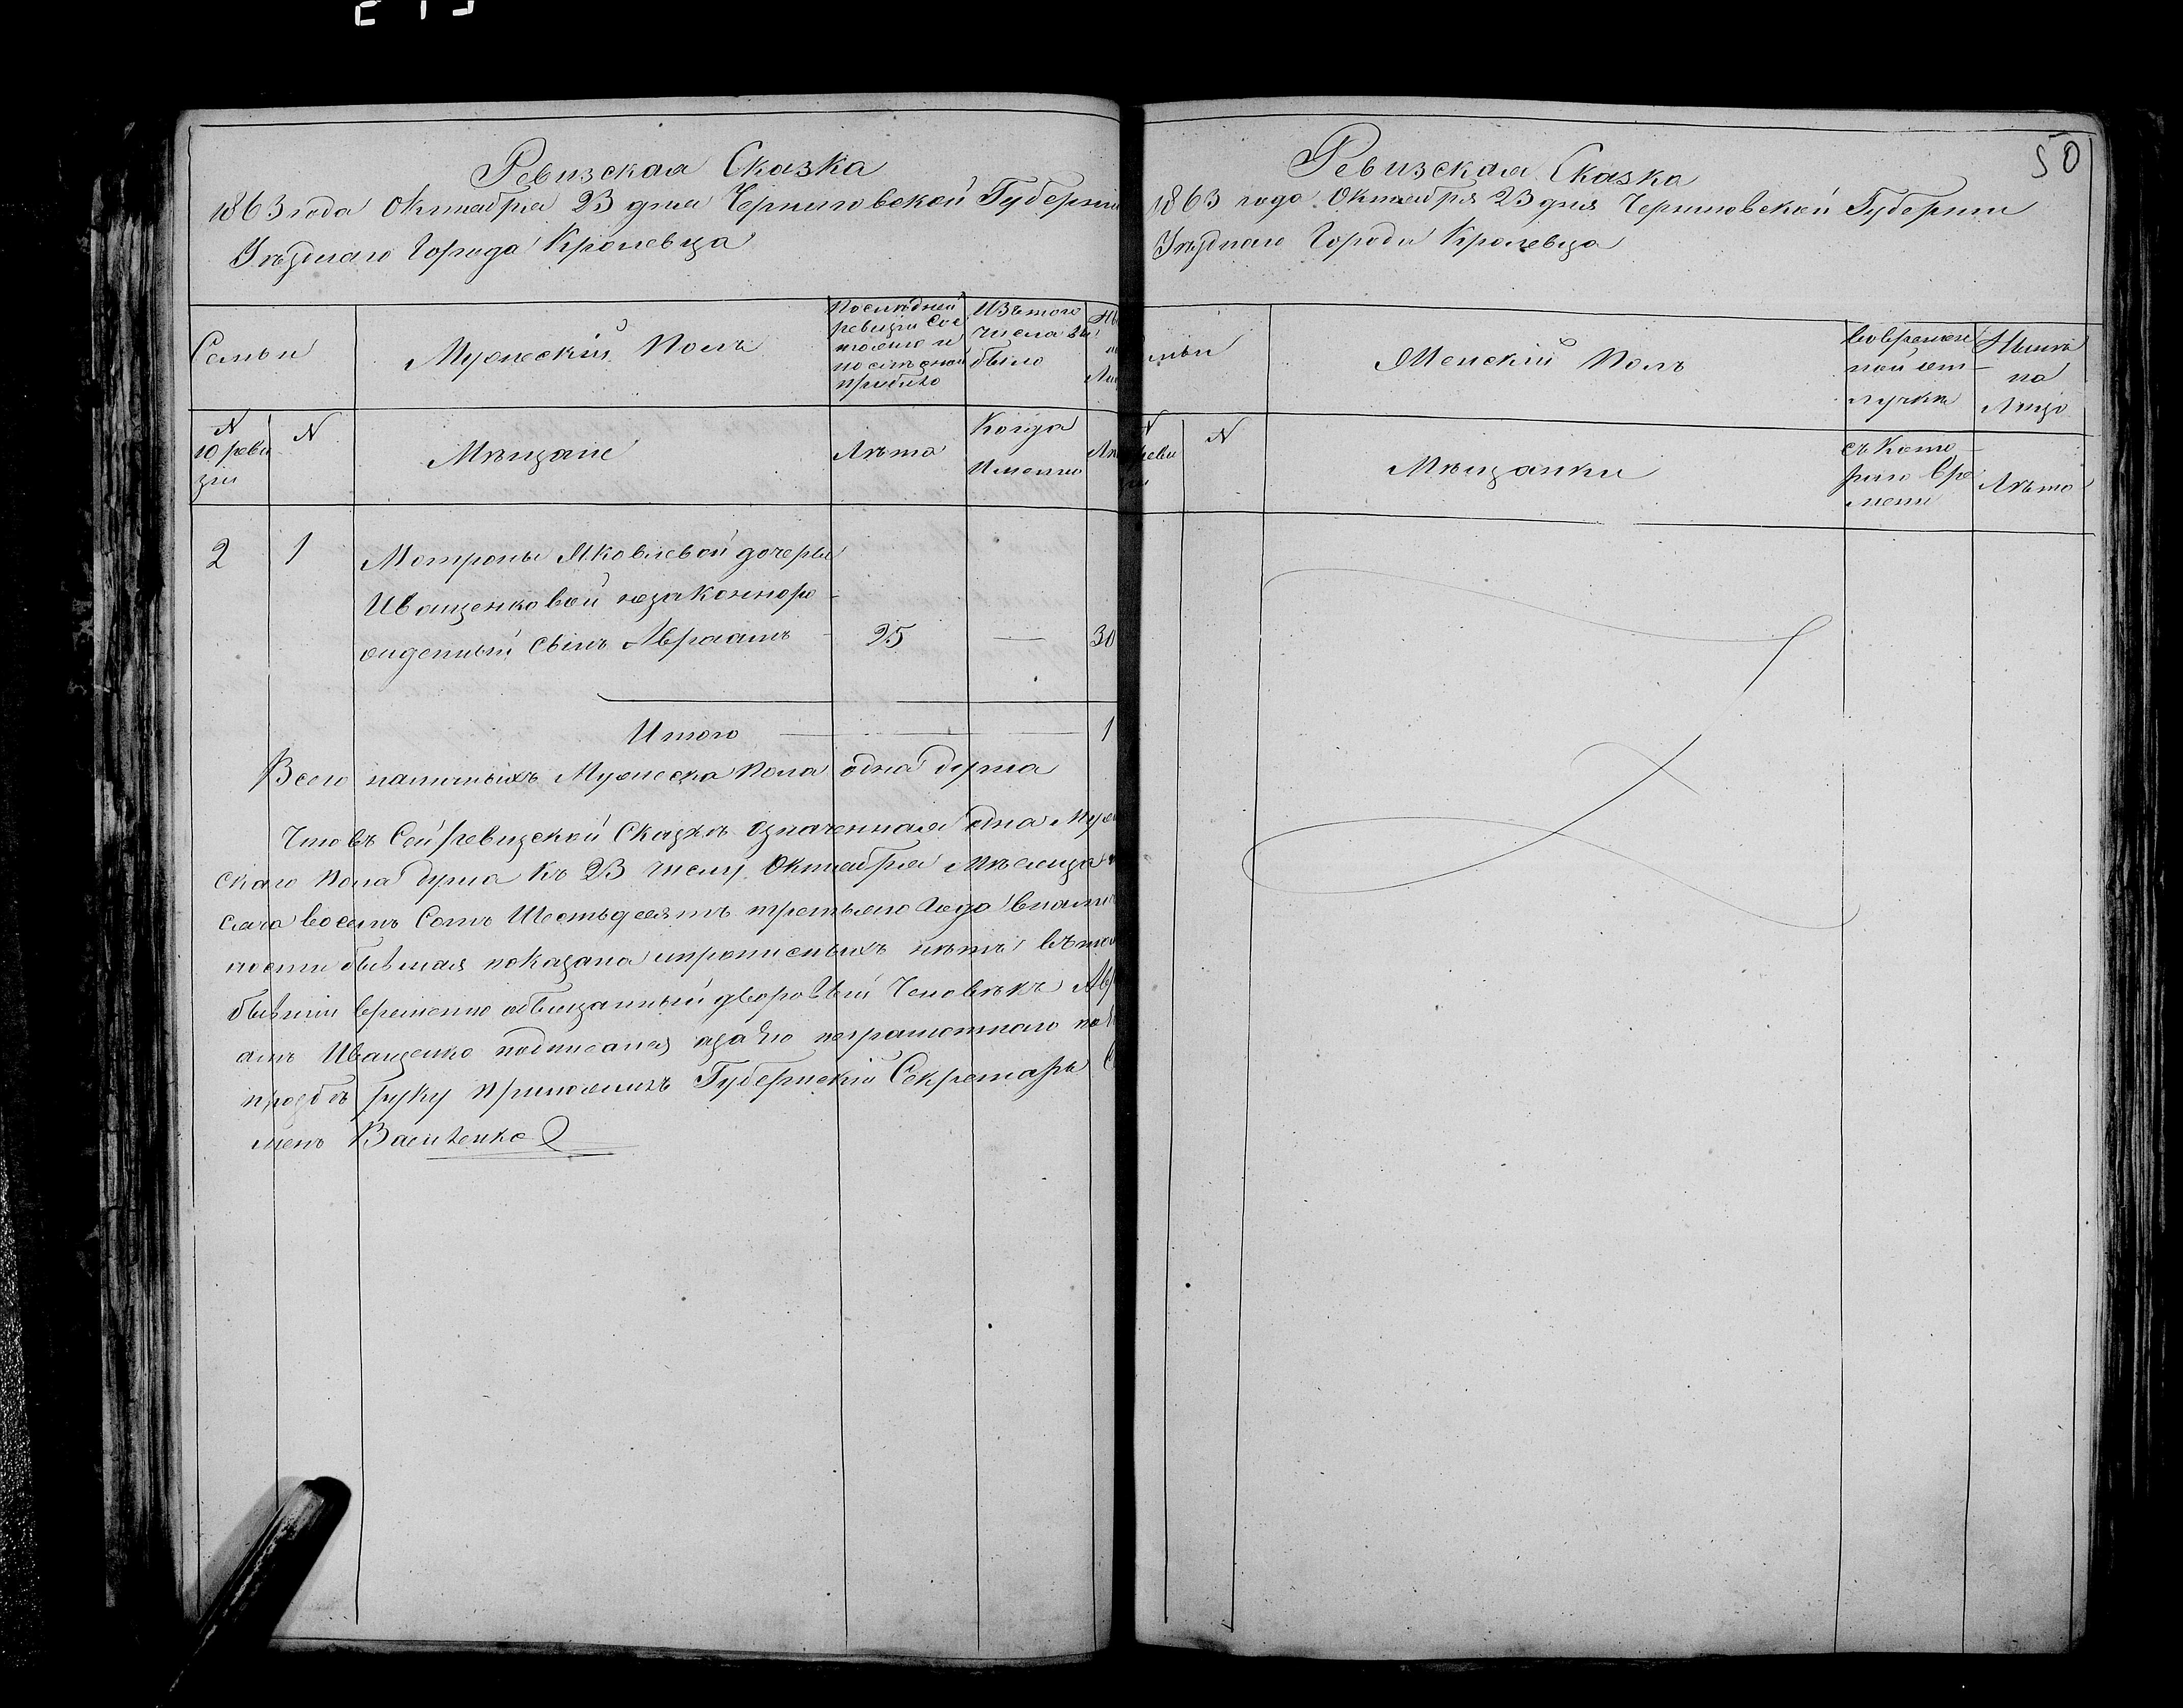 Ревизская Сказка
1863 года Октября 23 дня Черниговской Губерніи
Уѣзднаго Города Кролевца
Семьи
Мужескій Полъ
Последней
ревизіи Сос
тояло и
после оной
прибыло
Изъ того
числа вы
было
N
10 реви
зіи
N
Мѣщане
Лѣта
Когда
Именно
2 1 Мотроны Яковлевой дочери
Иващенковой незаконноро
жденный сынъ Авраамъ 25 — 30
Итого 1
Всего наличныхъ Мужеска Пола одна душа
Что въ Сей ревизской Сказкѣ Означенная одна Муже
скаго Пола душа къ 23 числу Октября Мѣсяца
сяча восемъ Сотъ Шестьдесятъ третьяго Года внали
ности бывшая показана ипрописныхъ нѣтъ вътом
бывшій временно обвязанный дворовый Человѣкъ Авр
амъ Иващенко подписался азаЯго неграмотнаго по
прозбѣ руку приложилъ Губернскій Секретарь С
менъ Василенко
50
Ревизская Сказка
1863 года Октября 23 дня Черниговской Губерніи
Уѣзднаго Города Кролевца
мьи
Женскій Полъ
Вовремен
ной от
лучкѣ
Нынѣ
на
Лицо
N
реви
зіи
N
Мѣщанки
съ Кото
раго Вре
мени
Лѣта